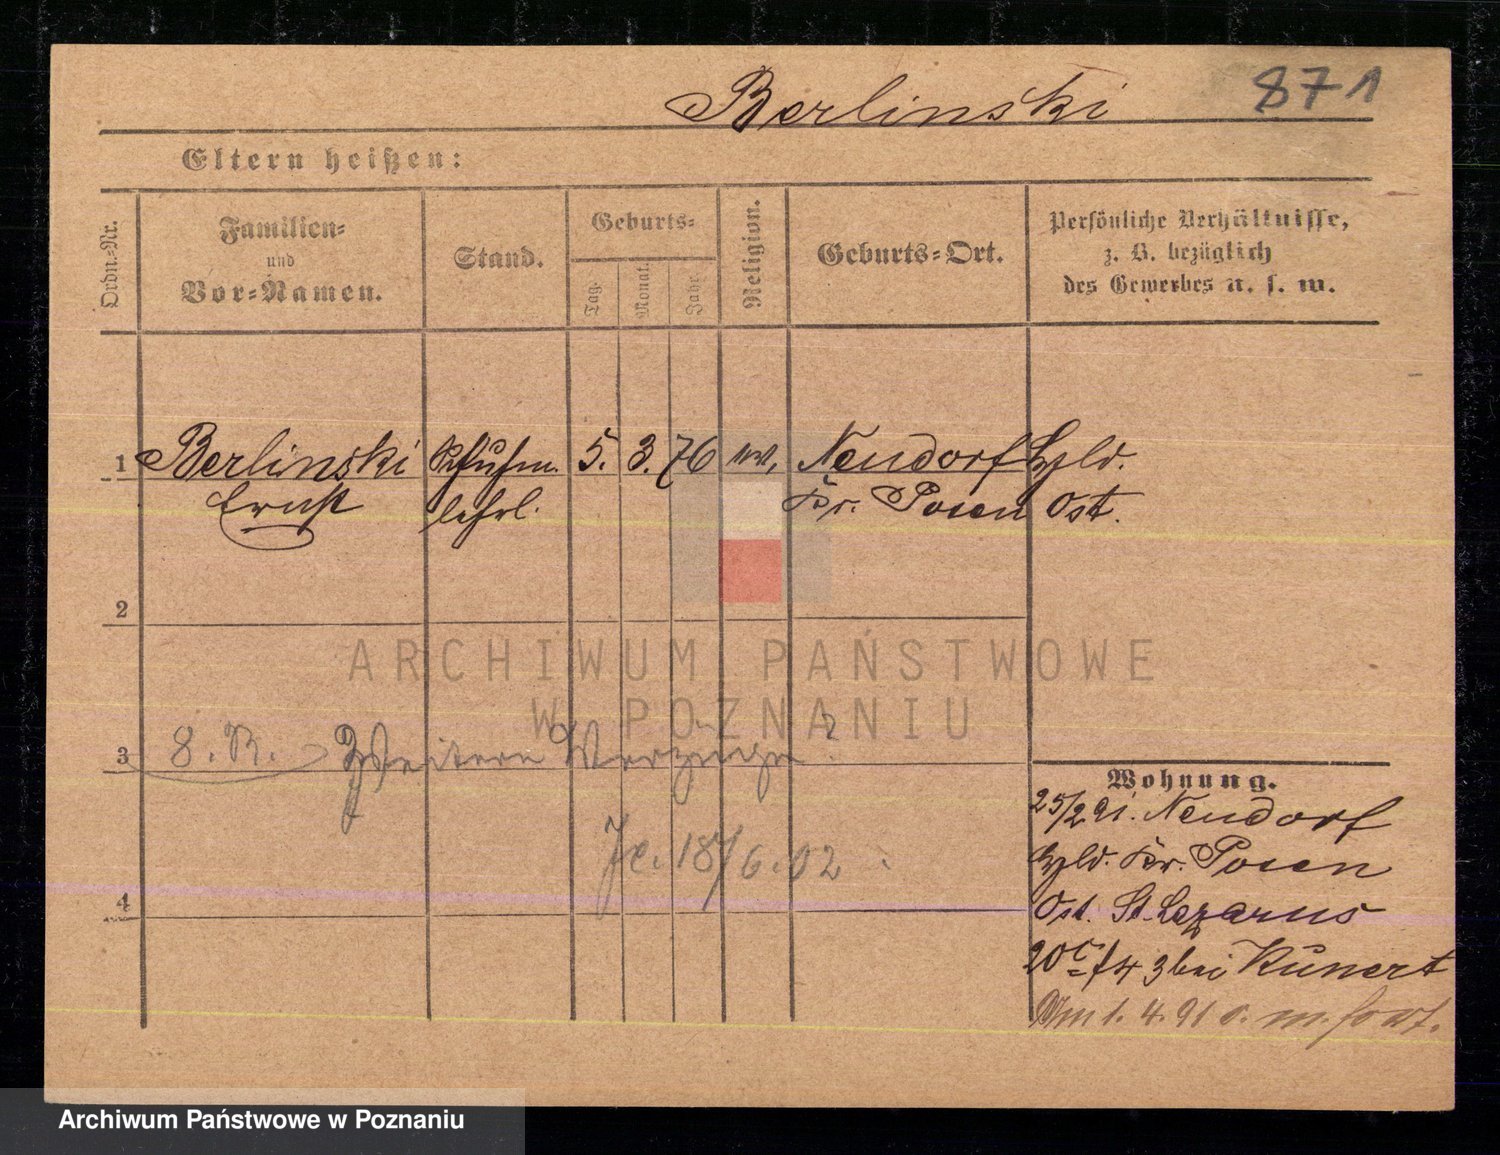 Berlinski
871
Eltern heißen:
Ordn.-Nr.
Familien-
und
Vor-Namen.
Stand.
Geburts-
Tag.
Monat.
Jahr.
Religion.
Geburts-Ort.
Persönliche Verhältnisse,
z. B. bezüglich
des Gewerbes u. s. w.
1 Berlinski 5. 3. 76 Neudorf
Ernst lehrl. Kr. Posen Ost.
2
3 8. R. Weitere
18/6.02
4
Wohnung.
25/2 91. Neudorf
Kr. Posen
Ost. St. Lazarus
bei Kunert
1. 4. 91 o. m. fort.
ARCHIWUM PAŃSTWOWE
W POZNANIU
Archiwum Państwowe w Poznaniu